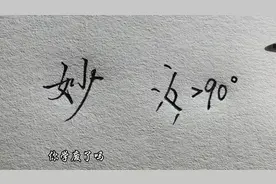 妙 >90°
你学废了吗